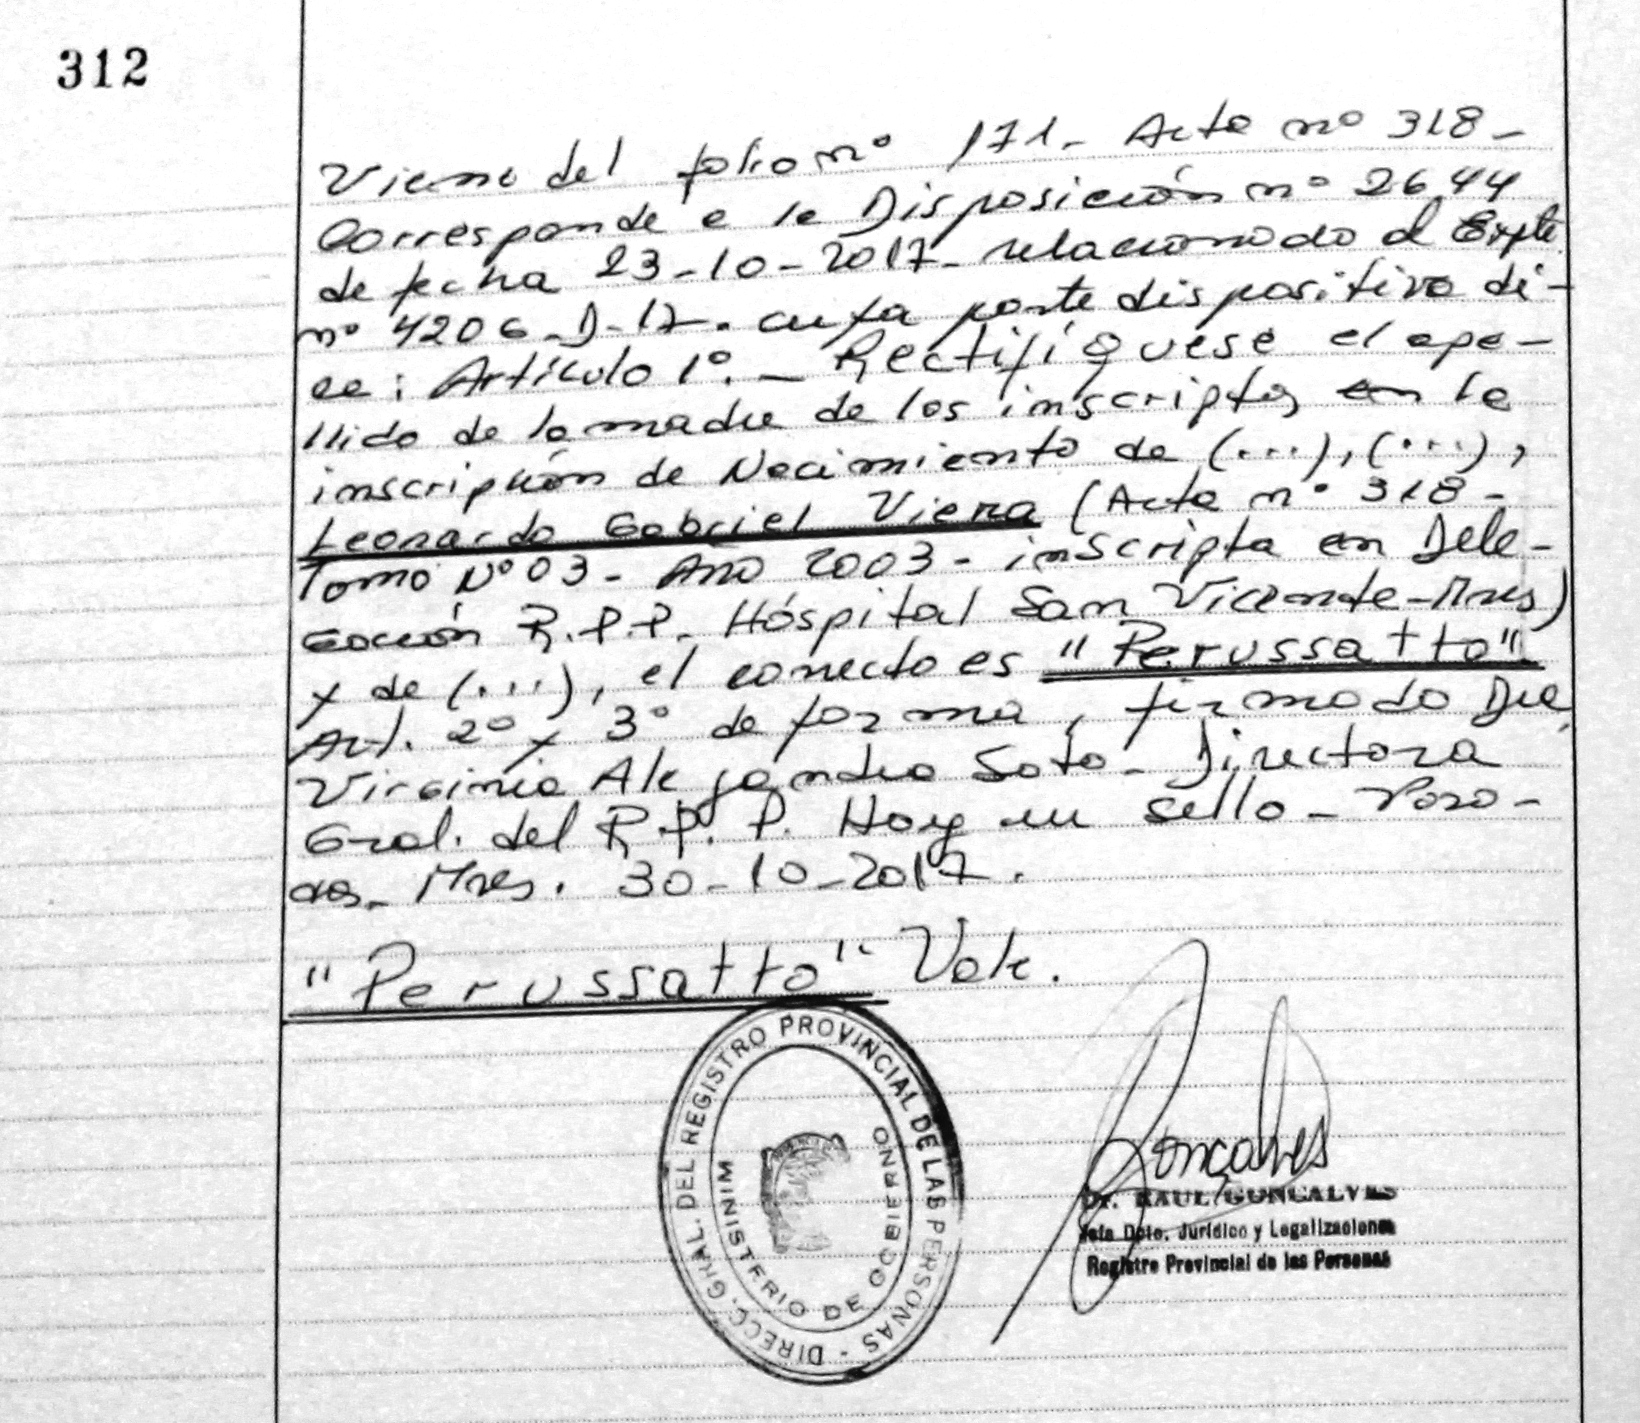 312
Viene del folio nº 171- Acta nº 318-
Corresponde a la Disposición nº 2644
de fecha 23-10-2017- relacionado al Expte
nº 4206-D-17. cuya parte dispositiva di-
ce: Artículo 1º.- Rectifíquese el ape-
llido de la madre de los inscriptos en la
inscripción de Nacimiento de (...), (...),
Leonardo Gabriel Viera (Acta nº 318-
Tomo Nº 03- Año 2003- inscripta en Dele-
gación R.P.P. Hospital San Vicente-Mnes)
y de (...), el correcto es "Perussatto".
Art. 2º y 3º de forma, firmado Dra,
Virginia Alejandra Soto- Directora
Gral. del R.P.P. Hay un sello- Posa-
das- Mnes. 30-10-2017.
"Perussatto" Vale.
DIRECC. GRAL. DEL REGISTRO PROVINCIAL DE LAS PERSONAS -
MINISTERIO DE GOBIERNO
Goncalves
Dr. RAUL GONCALVES
Jefe Dpto. Jurídico y Legalizaciones
Registro Provincial de las Personas